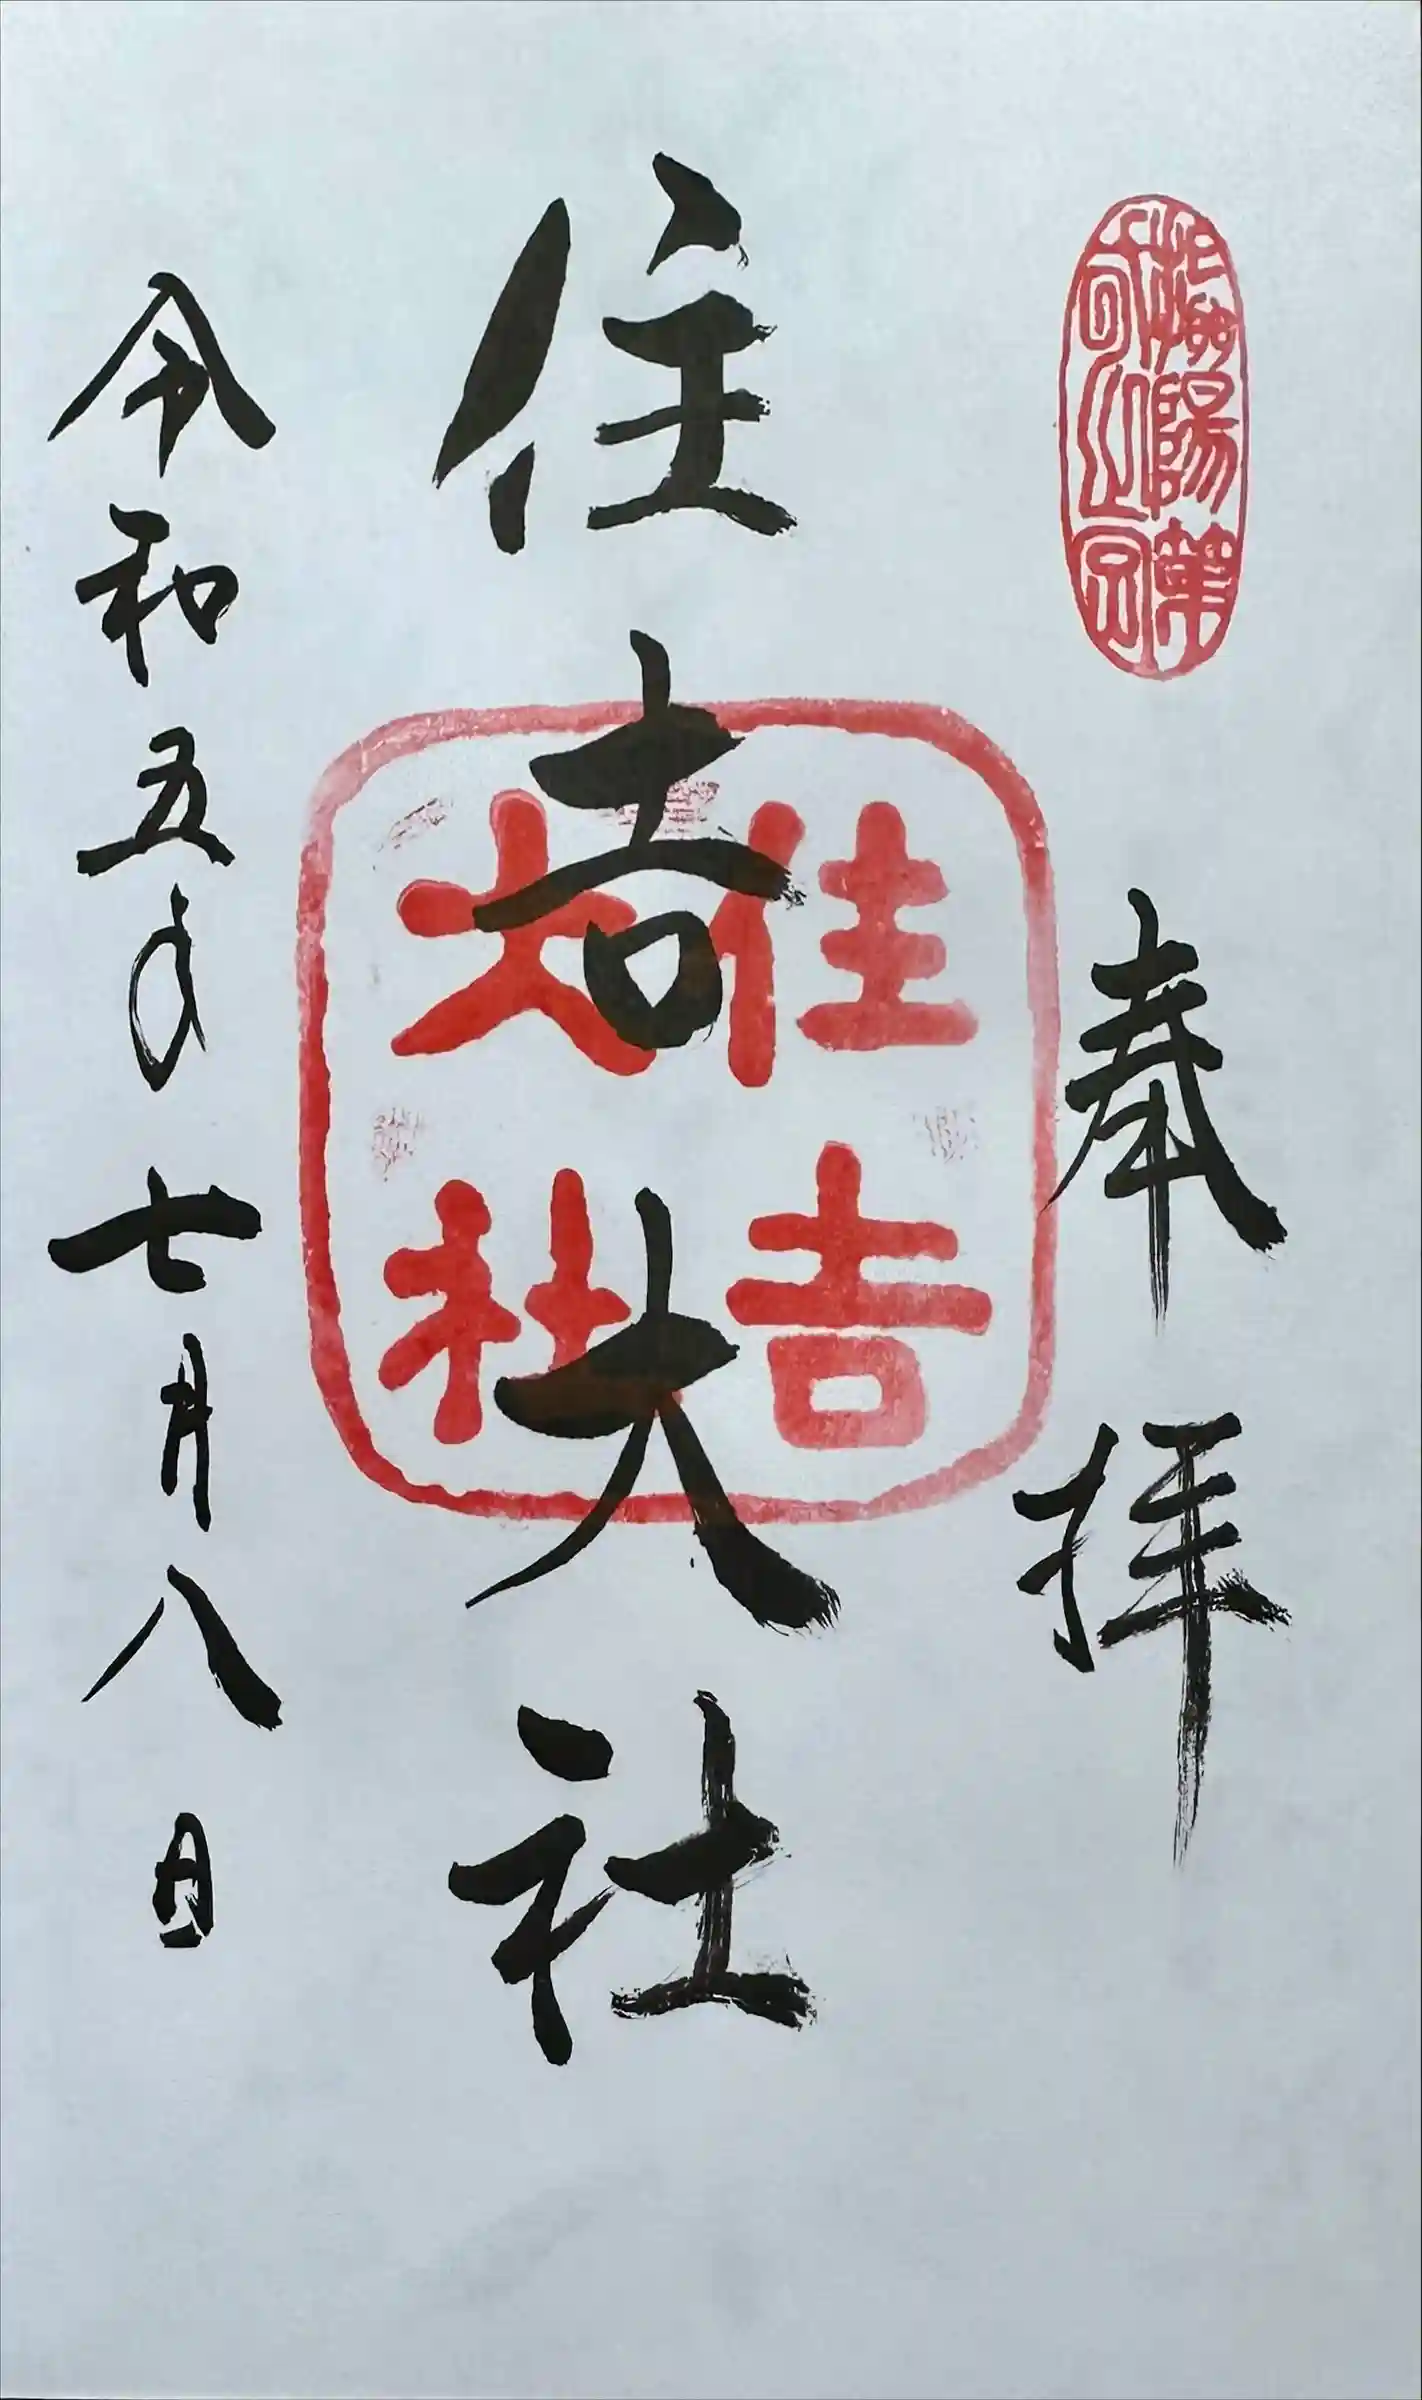 攝陽第
奉拝
住吉大社
住吉
大社
令和五年七月八日